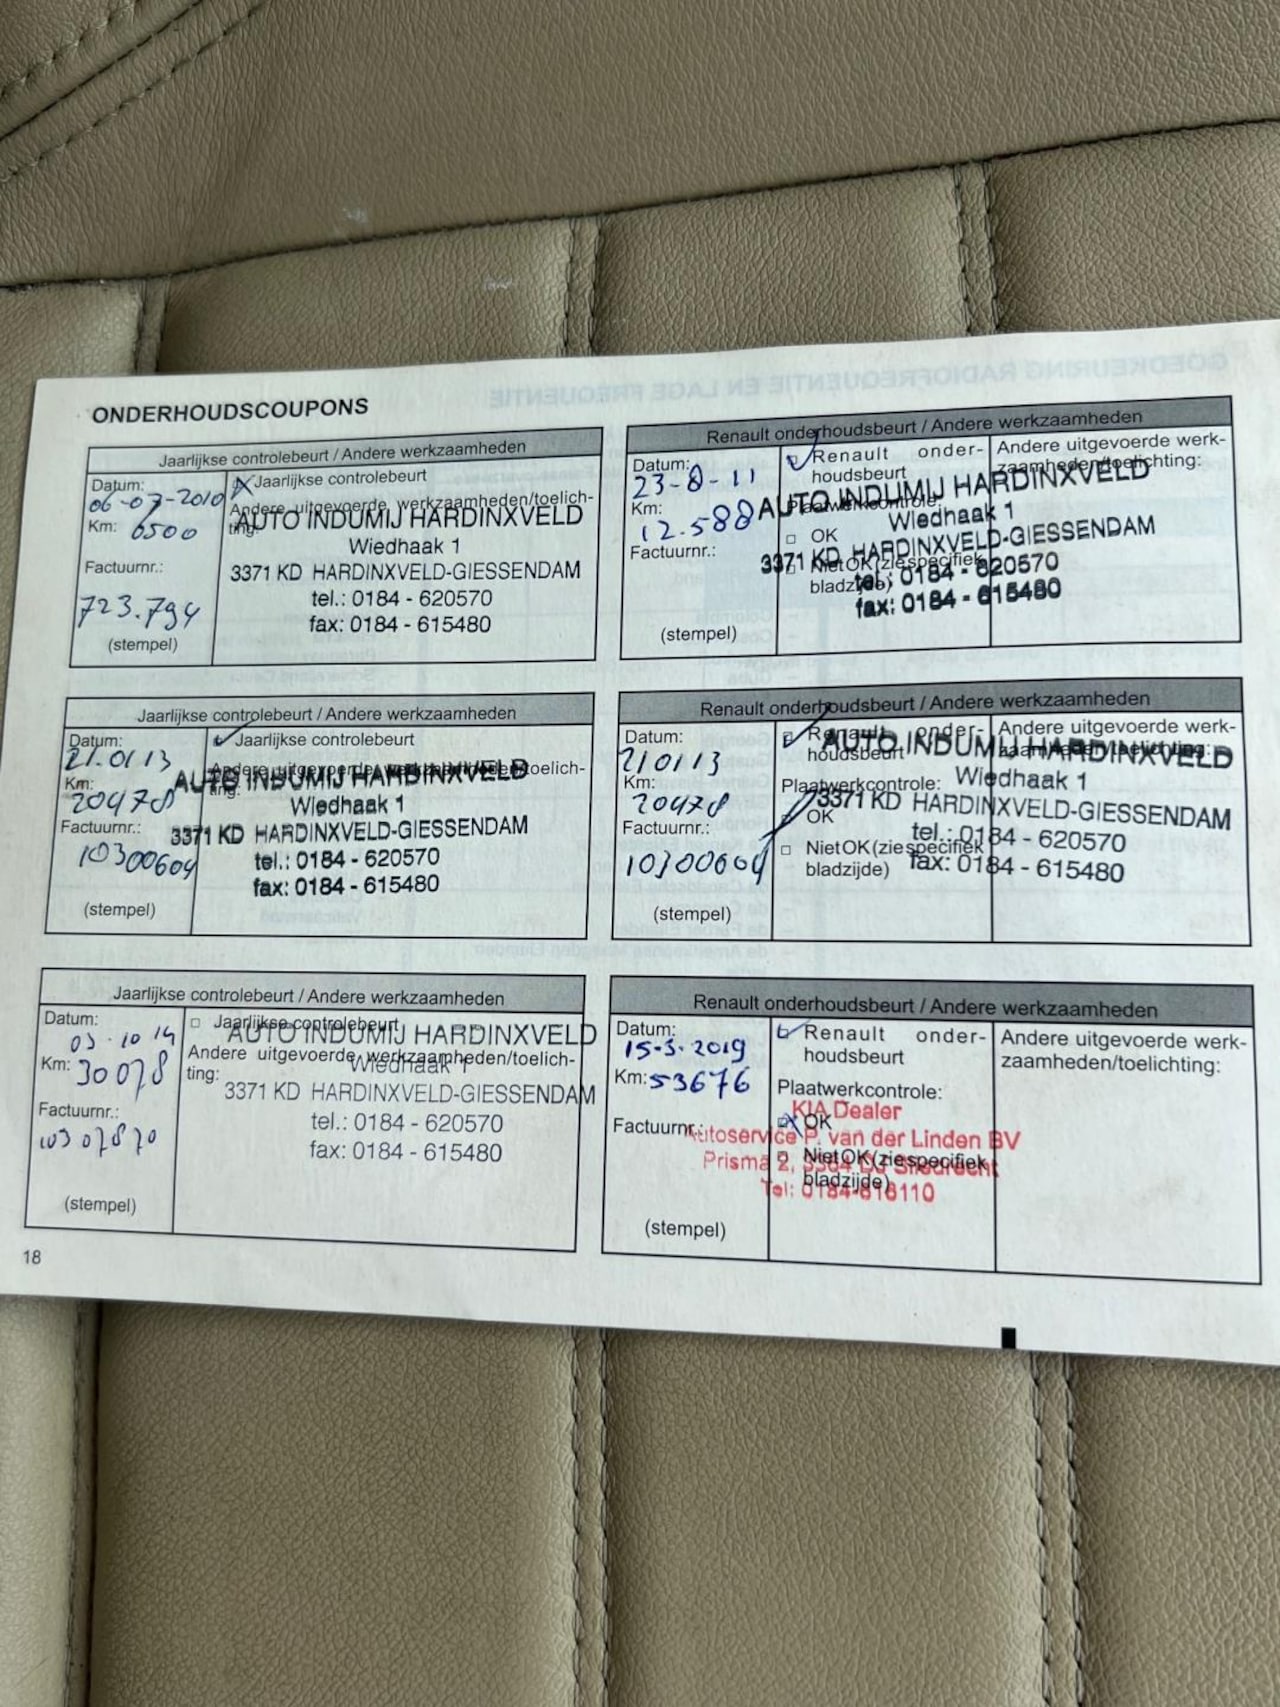 ONDERHOUDSCOUPONS
Jaarlijkse controlebeurt / Andere werkzaamheden
Datum:
06-07-2010
Km: 6500
Factuurnr.:
723.794
(stempel)
Jaarlijkse controlebeurt
Andere uitgevoerde werkzaamheden/toelich-
ting:
AUTO INDUMIJ HARDINXVELD
Wiedhaak 1
3371 KD HARDINXVELD-GIESSENDAM
tel.: 0184 - 620570
fax: 0184 - 615480
Renault onderhoudsbeurt / Andere werkzaamheden
Datum:
23-8-11
Km:
12.588
Factuurnr.:
(stempel)
Renault onder-
houdsbeurt
Plaatwerkcontrole:
OK
Niet OK (zie specifiek
bladzijde)
Andere uitgevoerde werk-
zaamheden/toelichting:
AUTO INDUMIJ HARDINXVELD
Wiedhaak 1
3371 KD HARDINXVELD-GIESSENDAM
tel.: 0184 - 620570
fax: 0184 - 615480
Jaarlijkse controlebeurt / Andere werkzaamheden
Datum:
21.01 13
Km:
20478
Factuurnr.:
10300604
(stempel)
Jaarlijkse controlebeurt
Andere uitgevoerde werkzaamheden/toelich-
ting:
AUTO INDUMIJ HARDINXVELD
Wiedhaak 1
3371 KD HARDINXVELD-GIESSENDAM
tel.: 0184 - 620570
fax: 0184 - 615480
Renault onderhoudsbeurt / Andere werkzaamheden
Datum:
210113
Km:
20478
Factuurnr.:
10300604
(stempel)
Renault onder-
houdsbeurt
Plaatwerkcontrole:
OK
Niet OK (zie specifiek
bladzijde)
Andere uitgevoerde werk-
zaamheden/toelichting:
AUTO INDUMIJ HARDINXVELD
Wiedhaak 1
3371 KD HARDINXVELD-GIESSENDAM
tel.: 0184 - 620570
fax: 0184 - 615480
Jaarlijkse controlebeurt / Andere werkzaamheden
Datum:
03 10 14
Km: 30078
Factuurnr.:
10307870
(stempel)
Jaarlijkse controlebeurt
Andere uitgevoerde werkzaamheden/toelich-
ting:
AUTO INDUMIJ HARDINXVELD
Wiedhaak 1
3371 KD HARDINXVELD-GIESSENDAM
tel.: 0184 - 620570
fax: 0184 - 615480
Renault onderhoudsbeurt / Andere werkzaamheden
Datum:
15-3-2019
Km: 53676
Factuurnr.:
(stempel)
Renault onder-
houdsbeurt
Plaatwerkcontrole:
OK
Niet OK (zie specifiek
bladzijde)
Andere uitgevoerde werk-
zaamheden/toelichting:
KIA Dealer
Autoservice P. van der Linden BV
Prisma 2, 3364 DJ Sliedrecht
Tel: 0184-616110
18